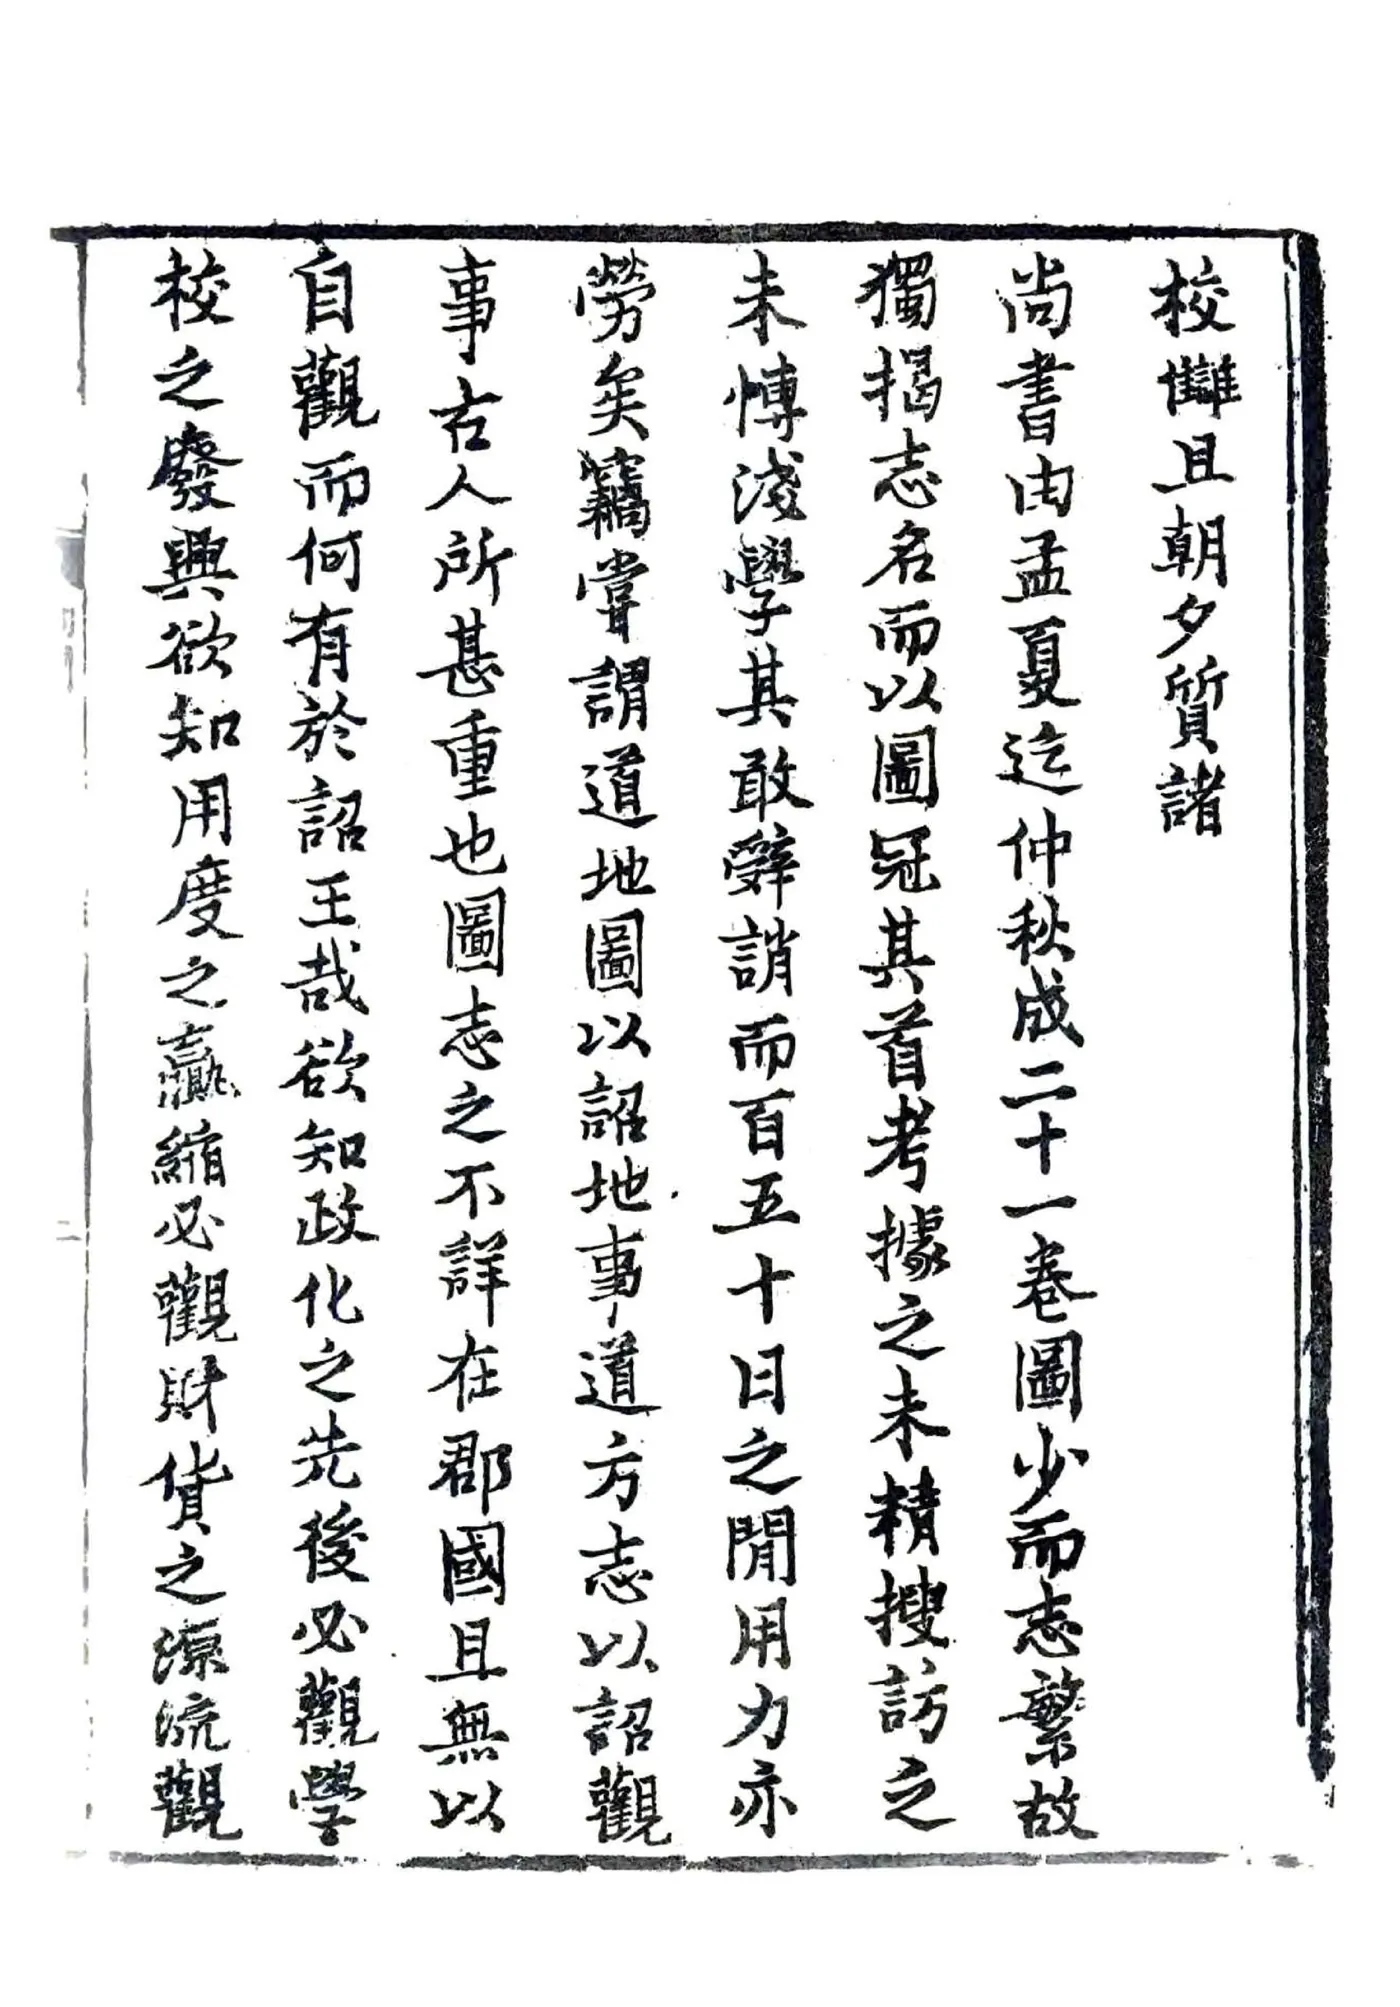 校讎且朝夕質諸
尚書由孟夏迄仲秋成二十一卷圖少而志繁故
獨揭志名而以圖冠其首考據之未精搜訪之
未愽淺學其敢辭誚而百五十日之閒用力亦
勞矣竊嘗謂道地圖以詔地事道方志以詔觀
事古人所甚重也圖志之不詳在郡國且無以
自觀而何有於詔王哉欲知政化之先後必觀學
校之發興欲知用度之贏縮必觀財貨之源流觀
二